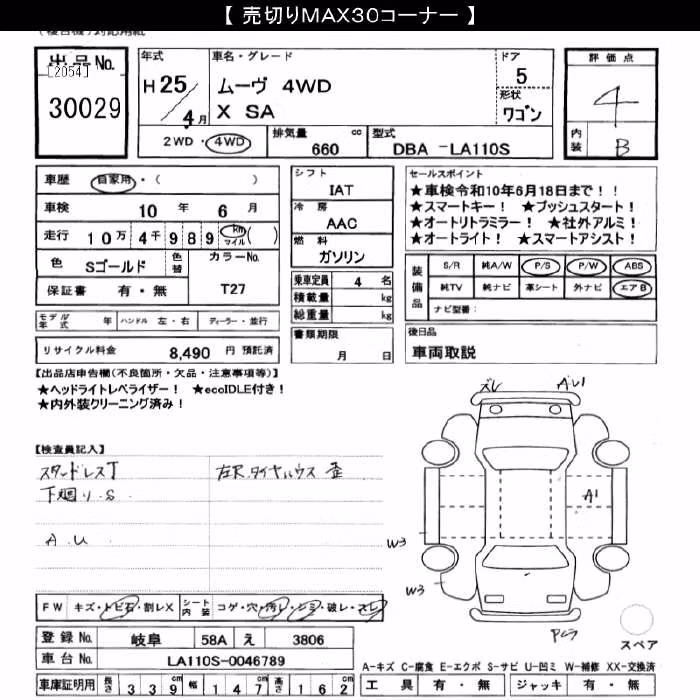 【 売切りMAX30コーナー 】
出品No. 年式 車名・グレード ドア 評価点
[2054] H 25 ムーヴ 4WD 5 4
30029 4月 X SA 形状 ワゴン 内装 B
2WD・4WD 排気量 660 cc 型式 DBA -LA110S
車歴 自家用・( ) シフト IAT セールスポイント
★車検令和10年6月18日まで！！
車検 10 年 6 月 冷房 AAC ★スマートキー！ ★プッシュスタート！
★オートリトラミラー！ ★社外アルミ！
走行 10万 4千 9 8 9 km マイル ( ) 燃料 ガソリン ★オートライト！ ★スマートアシスト！
色 Sゴールド 色替 カラーNo. T27 乗車定員 4 名
装備品 S/R 純A/W P/S P/W ABS
保証書 有・無 積載量 kg 純TV 純ナビ 革シート 外ナビ エアB
総重量 kg ナビ型番:
モデル年式 年 ハンドル 左・右 ディーラー・並行 書類期限 月 日 後日品
リサイクル料金 8,490 円 預託済 車両取説
【出品店申告欄(不良箇所・欠品・注意事項等)】
★ヘッドライトレベライザー！ ★ecoIDLE付き！
★内外装クリーニング済み！
ズレ A1
【検査員記入】
スタッドレスT 左R.タイヤハウス 歪
下廻り.S
A1
A.U
W3
W3
FW キズ・トビ石・割レX シート内装 コゲ・穴・汚レ・シミ・破レ・スレ
登録No. 岐阜 58A え 3806
スペア
車台No. LA110S-0046789
A-キズ C-腐食 E-エクボ S-サビ U-凹ミ W-補修 XX-交換済
車庫証明用 長さ 3 3 9 cm 幅 1 4 7 cm 高さ 1 6 2 cm 工具 有・無 ジャッキ 有・無